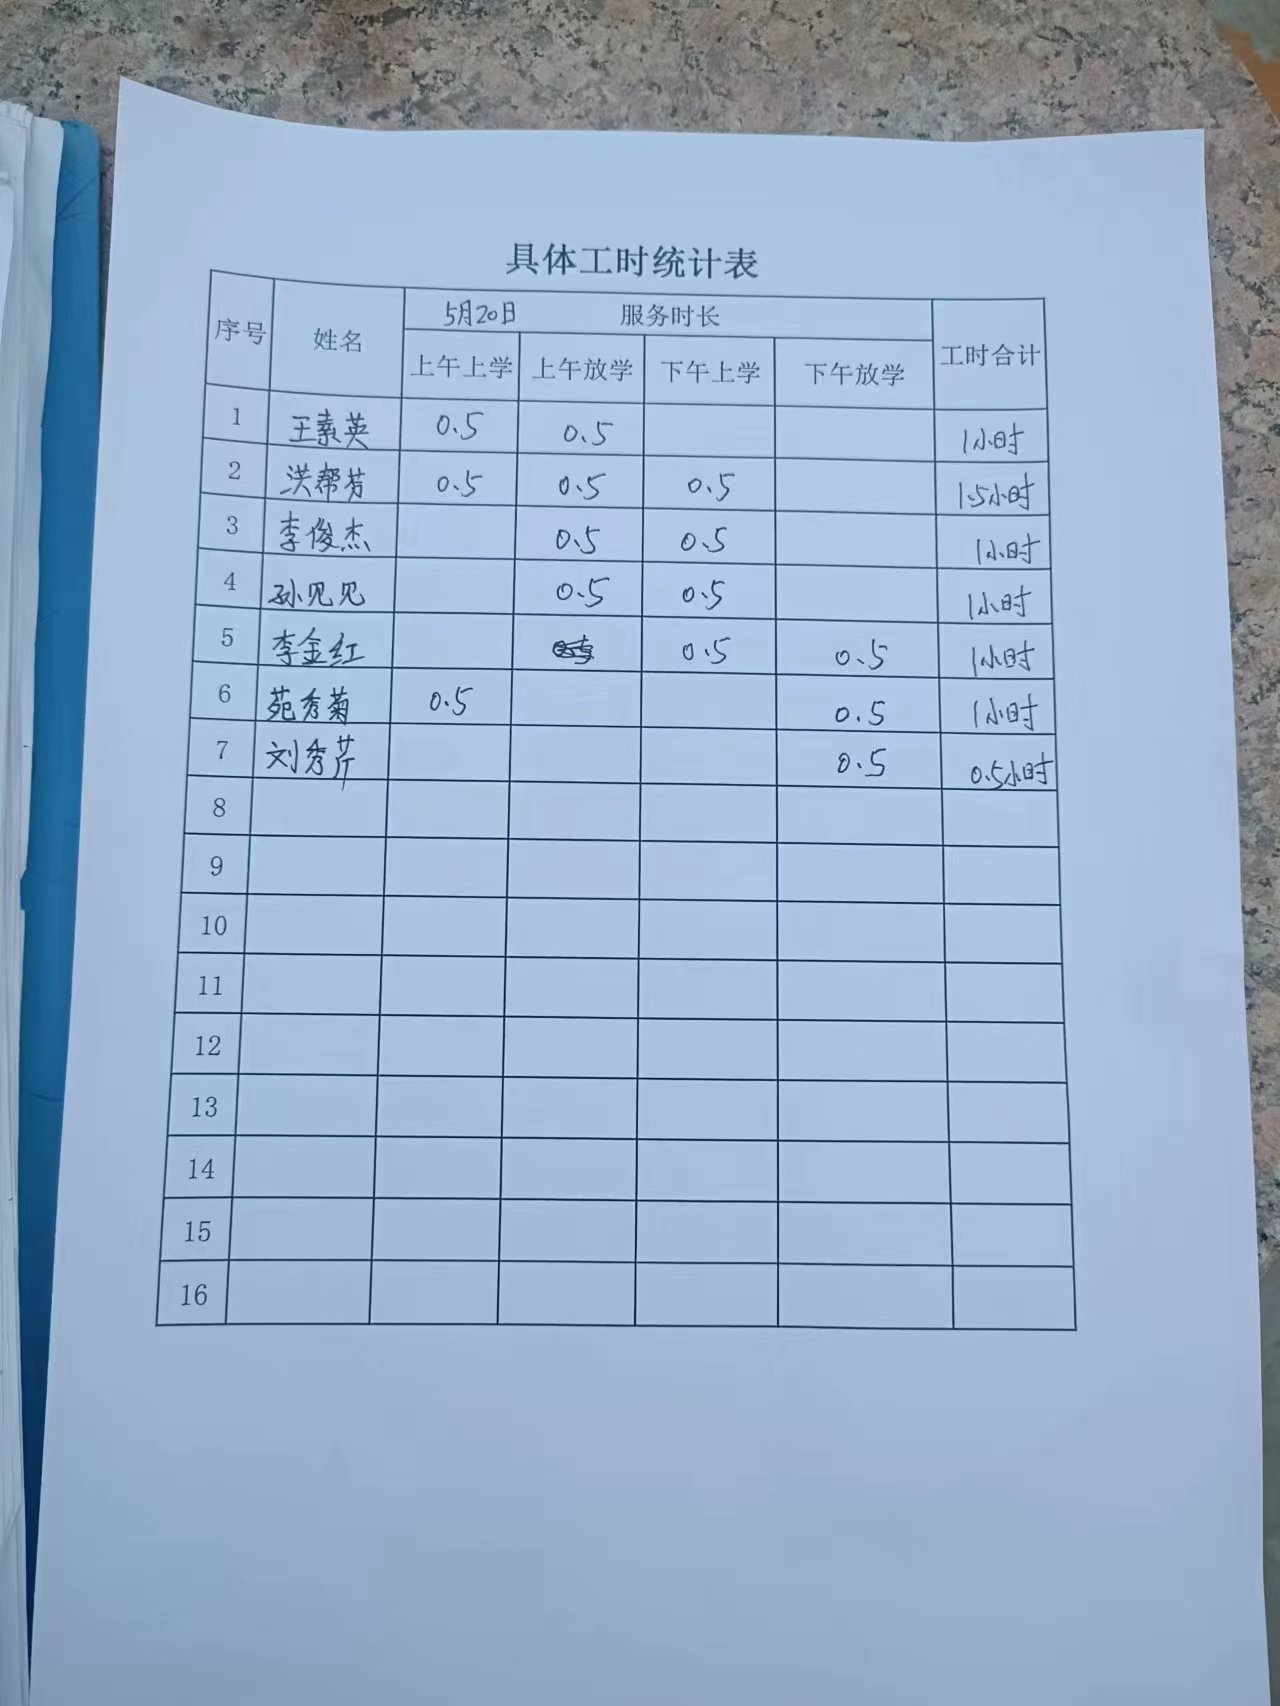 具体工时统计表
序号 姓名 5月20日 服务时长 工时合计
上午上学 上午放学 下午上学 下午放学
1 王素英 0.5 0.5 1小时
2 洪帮芳 0.5 0.5 0.5 1.5小时
3 李俊杰 0.5 0.5 1小时
4 孙见见 0.5 0.5 1小时
5 李金红 0.5 0.5 1小时
6 苑秀菊 0.5 0.5 1小时
7 刘秀芹 0.5 0.5小时
8
9
10
11
12
13
14
15
16